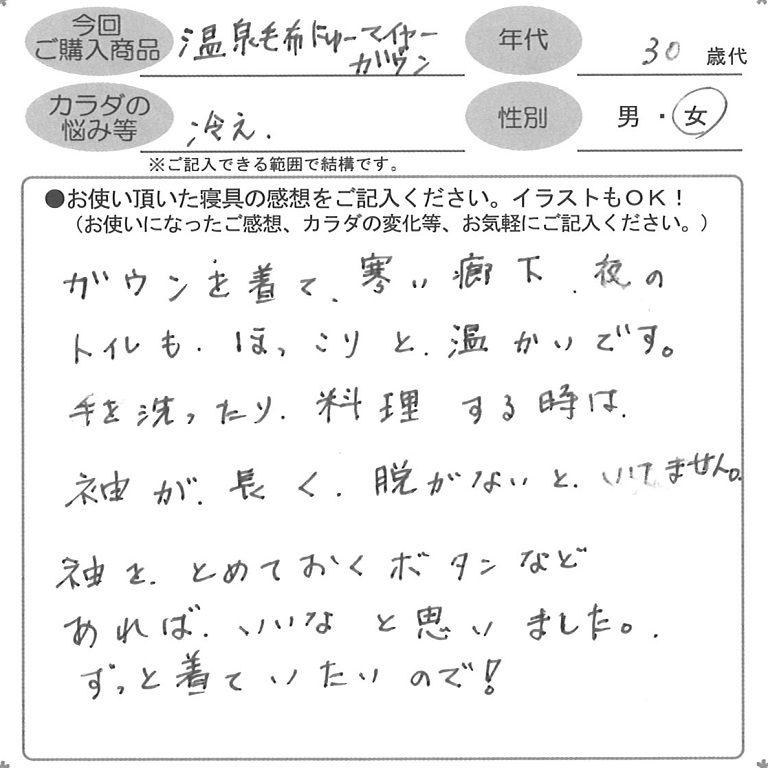 今回
ご購入商品
温泉毛布にゅーマイヤー
ガウン
年代
30 歳代
カラダの
悩み等
冷え.
性別
男・女
※ご記入できる範囲で結構です。
●お使い頂いた寝具の感想をご記入ください。イラストもOK！
（お使いになったご感想、カラダの変化等、お気軽にご記入ください。）
ガウンを着て、寒い廊下、夜の
トイレも、ほっこりと、温かいです。
手を洗ったり、料理する時は、
袖が、長く、脱がないと、いけません。
袖を、とめておくボタンなど
あれば、いいなと思いました。
ずっと着ていたいので！